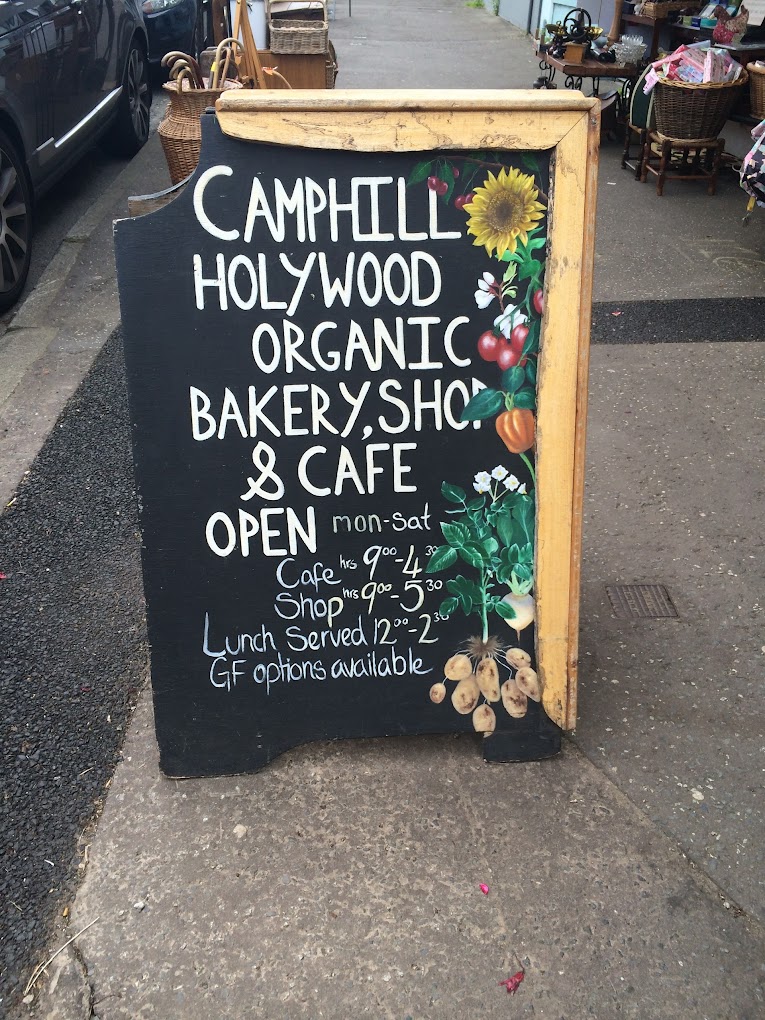 CAMPHILL
HOLYWOOD
ORGANIC
BAKERY, SHOP
& CAFE
OPEN mon-sat
Cafe hrs 9⁰⁰-4³⁰
Shop hrs 9⁰⁰-5³⁰
Lunch Served 12⁰⁰-2³⁰
GF options available